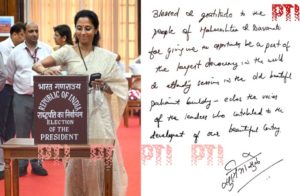 भारत गणराज्य
REPUBLIC OF INDIA
राष्ट्रपति का निर्वाचन
ELECTION
OF THE
PRESIDENT
PTI
PTI
PTI
PTI
Blessed & gratitude to the
people of Maharashtra &
for giving me an opportunity to be a part of
the largest democracy in the world
& attending session in the old beautiful
parliament building - echoes the voices
of the leaders who contributed to the
development of our beautiful country.